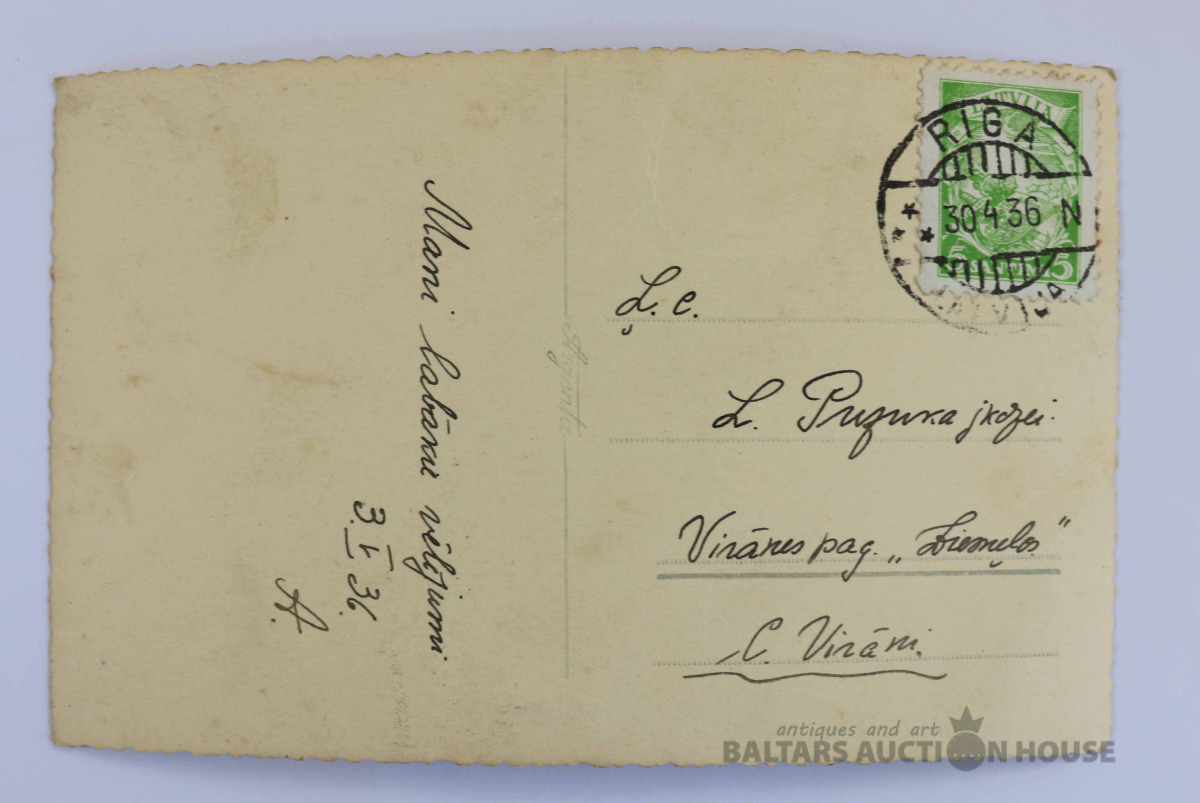 Mani labākie vēlējumi
3. V 36.
A.
LATVIJA
5 5
RIGA
30 4 36 N
LATVIJA
Ļ. c.
L. Puzuma jkdzei.
Virānes pag. „Ziemeļos"
C. Virāni.
antiques and art
BALTARS AUCTION HOUSE